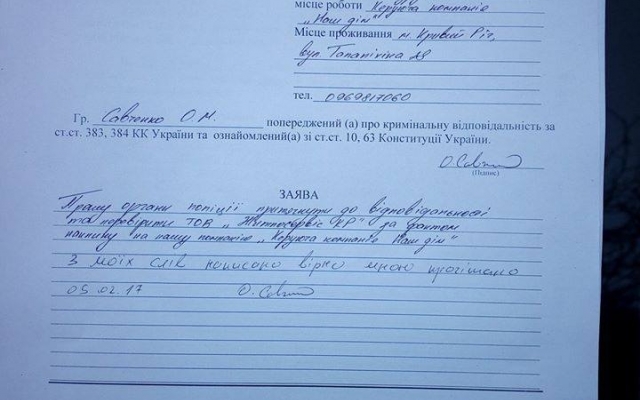 місце роботи Керуюча компанія
„Наш дім"
Місце проживання м. Кривий Ріг,
вул.
тел. 0969817060
Гр. Савченко О.М. попереджений (а) про кримінальну відповідальність за
ст.ст. 383, 384 КК України та ознайомлений(а) зі ст.ст. 10, 63 Конституції України.
О. Сав
(Підпис)
ЗАЯВА
Прошу органи поліції притягнути до відповідальності
та перевірити ТОВ „Житлосервіс КР" за фактом
на нашу компанію „Керуюча компанія Наш дім"
З моїх слів написано вірно мною прочитано
03.02.17 О. Сав